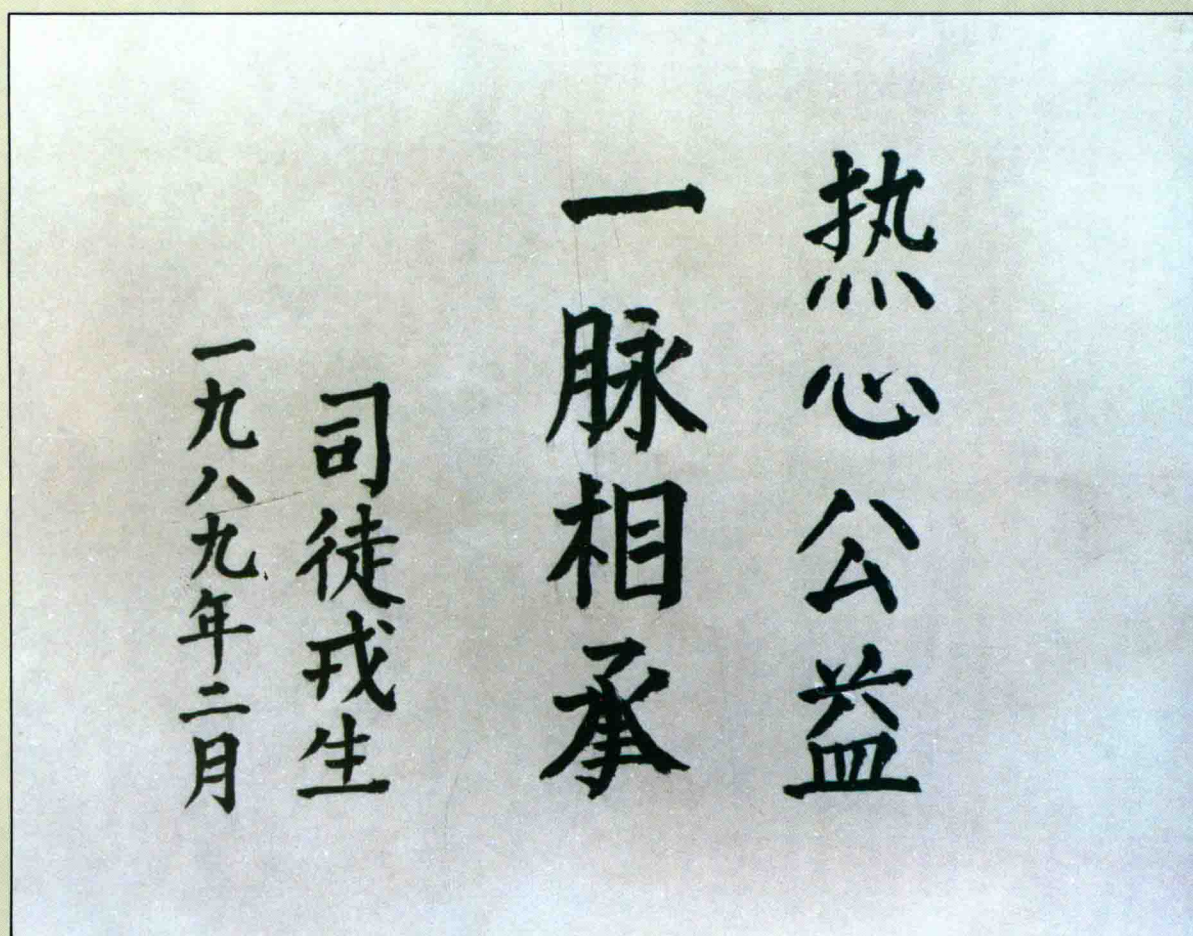 热心公益
一脉相承
司徒戎生
一九八九年二月